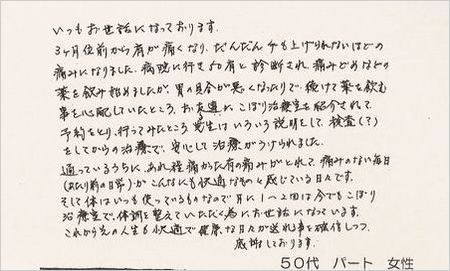 いつもお世話になっております。
3ヶ月位前から肩が痛くなり、だんだん手も上げられないほどの
痛みになりました。病院に行き50肩と診断され、痛みどめなどの
薬を飲み始めましたが、胃の具合が悪くなったりで、続けて薬を飲む
事を心配していたところ、お友達にこばり治療室を紹介されて
予約をとり、行ってみたところ先生はいろいろ説明をして、検査(?)
をしてからの治療で、安心して治療がうけられました。
通っているうちに、あれ程痛かった肩の痛みがとれて、痛みのない毎日
(あたり前の日常)がこんなにも快適なものと感じている日々です。
そして体はいつも使っているものなので月に1〜2回は今でもこばり
治療室で、体調を整えていただく為にお世話になっています。
これから先の人生も快適で健康な日々が送れる事を確信しつつ、
感謝しております。
50代 パート 女性